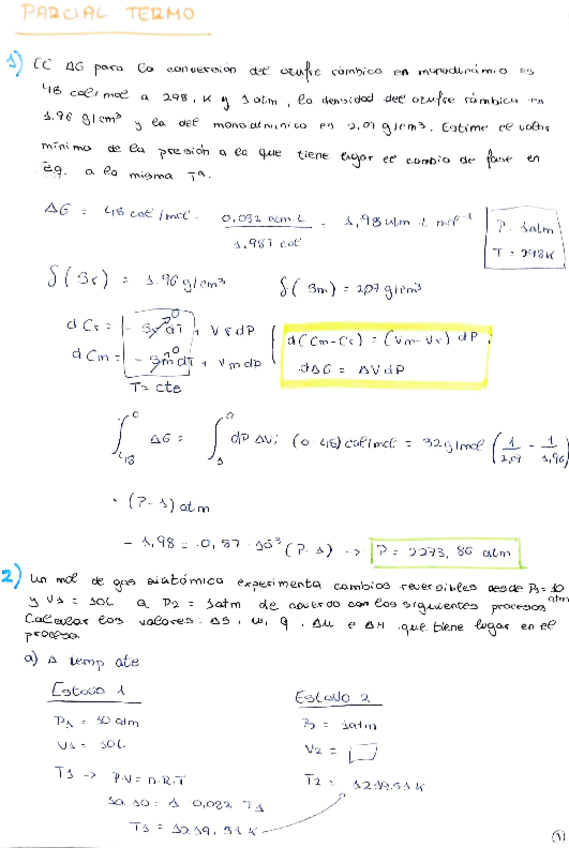 PARCIAL TERMO
1) EC ΔG para la conversión del azufre rómbico en monoclínico es
48 cal/mol a 298, K y 1 atm, la densidad del azufre rómbico es
1.96 g/cm³ y la del monoclínico es 2,07 g/cm³. Estime el valor
mínimo de la presión a la que tiene lugar el cambio de fase en
eq. a la misma Tª.
ΔG = 48 cal/mol. 0,082 atm·L / 1,987 cal = 1,98 atm L mol⁻¹
P = 1 atm
T = 298K
δ(Sr) = 1.96 g/cm³ δ(Sm) = 2,07 g/cm³
dGr = - Sr dT⁰ + Vr dP
dGm = - Sm dT⁰ + Vm dP
T = cte
d(Gm-Gr) = (Vm-Vr) dP
dΔG = ΔV dP
∫ ΔG = ∫ dP ΔV; (0 48) cal/mol = 32 g/mol (1/2,07 - 1/1,96)
· (P-1) atm
- 1,98 = -0,87 · 10³ (P-1) -> P = 2273,86 atm
2) Un mol de gas diatómico experimenta cambios reversibles desde P1 = 10 atm
y V1 = 10L a P2 = 1 atm de acuerdo con los siguientes procesos
Calcular los valores: ΔS, w, q, ΔU e ΔH que tiene lugar en el
proceso.
a) Δ temp cte
Estado 1 Estado 2
P1 = 10 atm P2 = 1 atm
V1 = 10L V2 = □
T1 -> P·V = n·R·T T2 = 1219.51 K
10·10 = 1 0,082 T1
T1 = 1219,51 K
1)